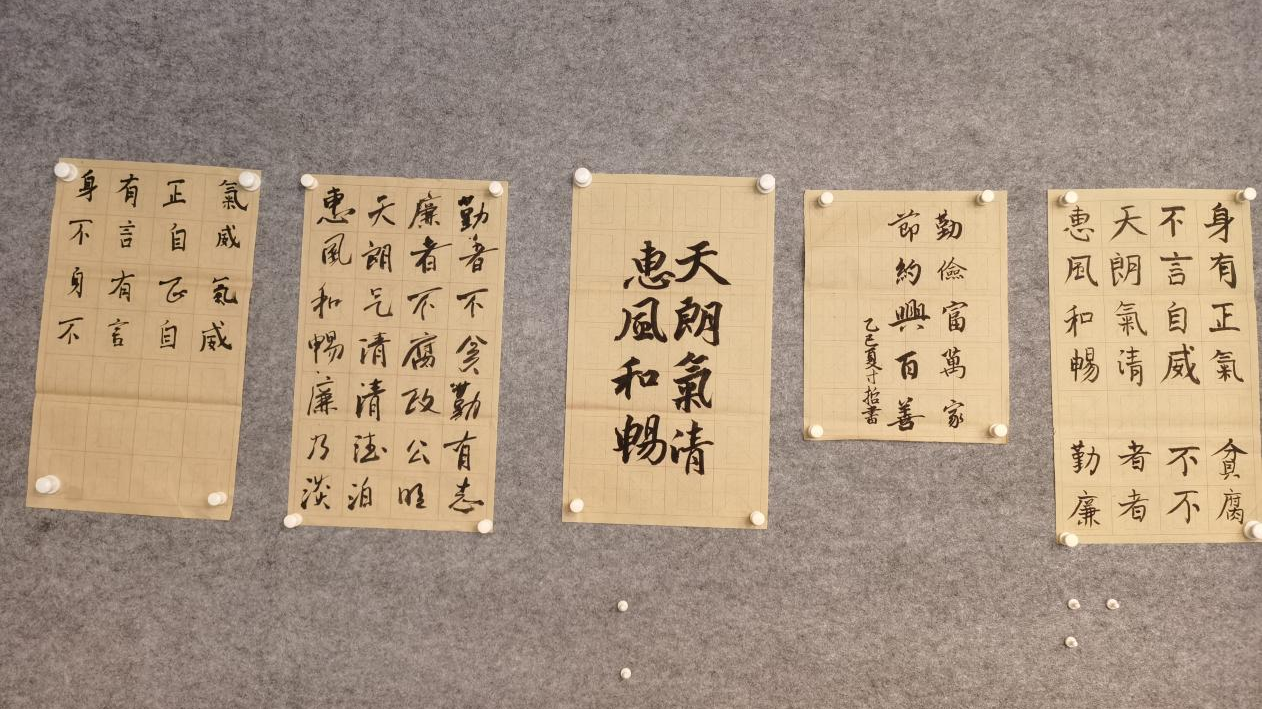 身有正氣
不言自威
身有正氣
不言自威
勤者不貪勤有志
廉者不腐政公明
天朗气清清泊
惠風和暢廉乃淡
天朗氣清
惠風和暢
勤儉富萬家
節約興百善
乙巳夏寸書
身有正氣
不言自威
天朗氣清
惠風和暢
勤者不貪
廉者不腐